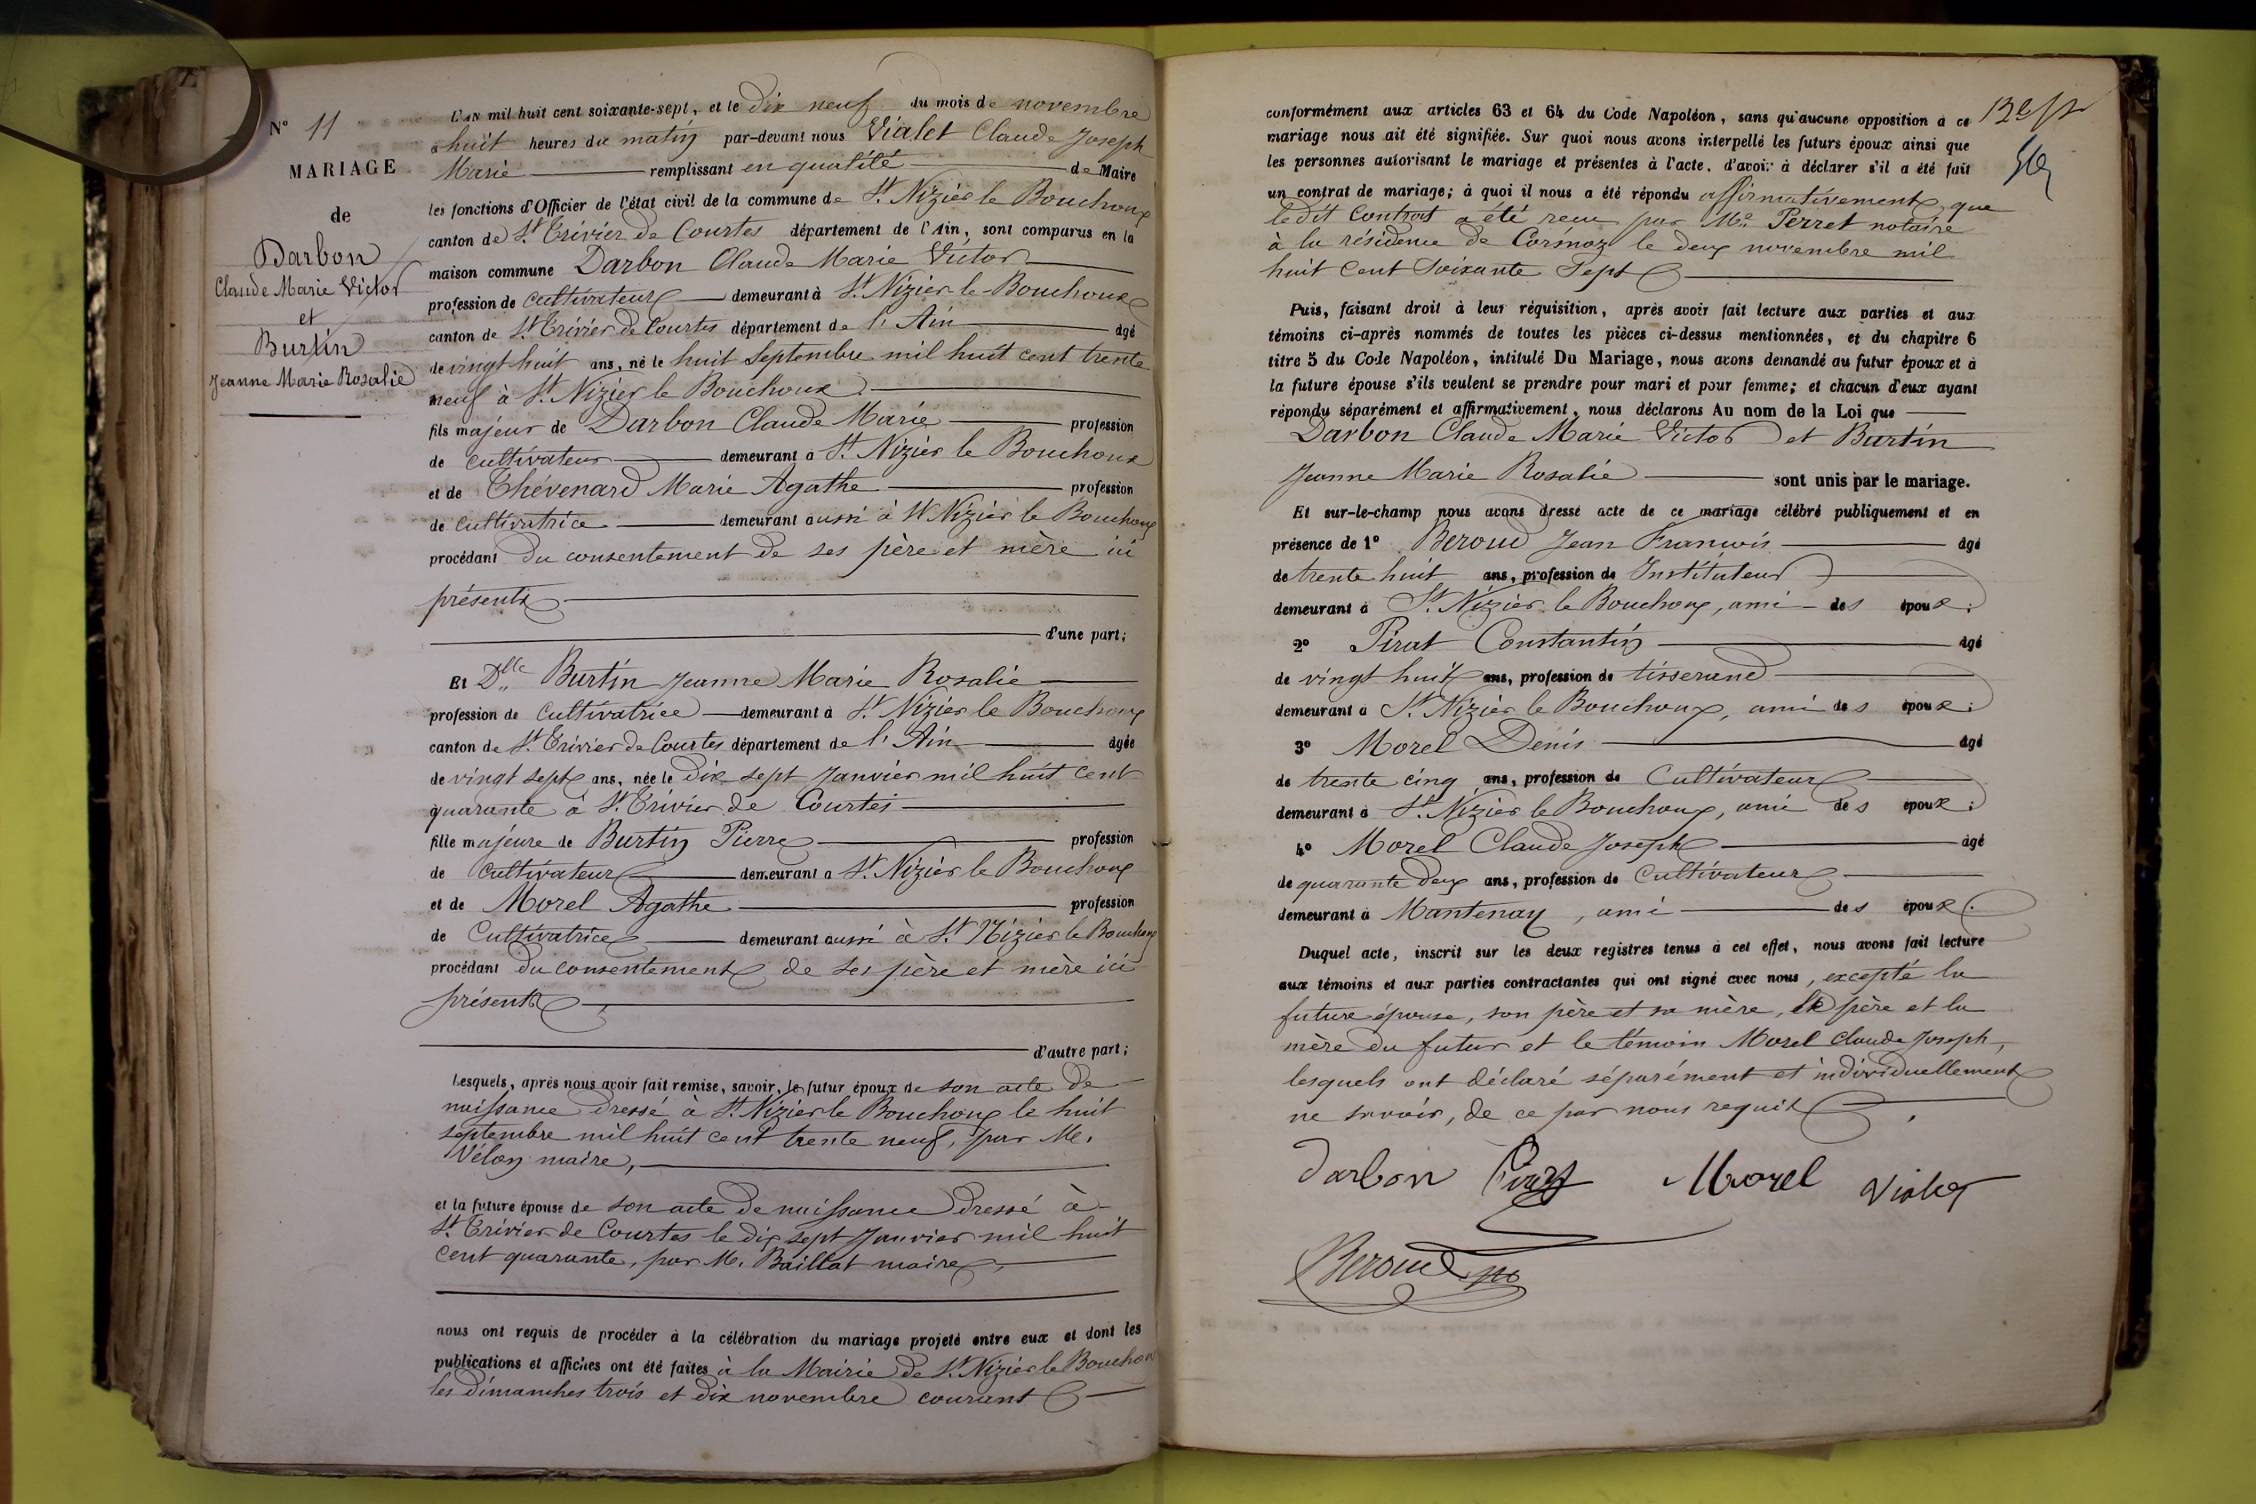 N° 11
MARIAGE
de
Darbon
Claude Marie Victor
et
Burtin
Jeanne Marie Rosalie
L'AN mil huit cent soixante-sept, et le dix neuf du mois de novembre
à huit heures du matin par-devant nous Vialet Claude Joseph
Marie remplissant en qualité de Maire
les fonctions d'Officier de l'état civil de la commune de St Nizier le Bouchoux
canton de St Trivier de Courtes département de l'Ain, sont comparus en la
maison commune Darbon Claude Marie Victor
profession de cultivateur demeurant à St Nizier le Bouchoux
canton de St Trivier de Courtes département de l'Ain âgé
de vingt huit ans, né le huit Septembre mil huit cent trente
neuf à St Nizier le Bouchoux
fils majeur de Darbon Claude Marie profession
de cultivateur demeurant à St Nizier le Bouchoux
et de Thévenard Marie Agathe profession
de cultivatrice demeurant aussi à St Nizier le Bouchoux
procédant du consentement de ses père et mère ici
présents
d'une part;
Et Dlle Burtin Jeanne Marie Rosalie
profession de cultivatrice demeurant à St Nizier le Bouchoux
canton de St Trivier de Courtes département de l'Ain âgée
de vingt sept ans, née le dix sept Janvier mil huit cent
quarante à St Trivier de Courtes
fille majeure de Burtin Pierre profession
de cultivateur demeurant à St Nizier le Bouchoux
et de Morel Agathe profession
de Cultivatrice demeurant aussi à St Nizier le Bouchoux
procédant du consentement de ses père et mère ici
présents
d'autre part;
Lesquels, après nous avoir fait remise, savoir, le futur époux de son acte de
naissance dressé à St Nizier le Bouchoux le huit
septembre mil huit cent trente neuf, par M.
Vélon maire,
et la future épouse de son acte de naissance dressé à
St Trivier de Courtes le dix sept Janvier mil huit
cent quarante, par M. Baillat maire,
nous ont requis de procéder à la célébration du mariage projeté entre eux et dont les
publications et affiches ont été faites à la Mairie de St Nizier le Bouchoux
les dimanches trois et dix novembre courant
conformément aux articles 63 et 64 du Code Napoléon, sans qu'aucune opposition à ce
mariage nous ait été signifiée. Sur quoi nous avons interpellé les futurs époux ainsi que
les personnes autorisant le mariage et présentes à l'acte, d'avoir à déclarer s'il a été fait
un contrat de mariage; à quoi il nous a été répondu affirmativement, que
le dit Contrat a été reçu par Me Perret notaire
à la résidence de Cormoz le deux novembre mil
huit Cent Soixante Sept
Puis, faisant droit à leur réquisition, après avoir fait lecture aux parties et aux
témoins ci-après nommés de toutes les pièces ci-dessus mentionnées, et du chapitre 6
titre 5 du Code Napoléon, intitulé Du Mariage, nous avons demandé au futur époux et à
la future épouse s'ils veulent se prendre pour mari et pour femme; et chacun d'eux ayant
répondu séparément et affirmativement, nous déclarons Au nom de la Loi que
Darbon Claude Marie Victor et Burtin
Jeanne Marie Rosalie sont unis par le mariage.
Et sur-le-champ nous avons dressé acte de ce mariage célébré publiquement et en
présence de 1° Beroud Jean François âgé
de trente huit ans, profession de Instituteur
demeurant à St Nizier le Bouchoux, ami des époux;
2° Pirat Constantin âgé
de vingt huit ans, profession de tisserand
demeurant à St Nizier le Bouchoux, ami des époux;
3° Morel Denis âgé
de trente cinq ans, profession de Cultivateur
demeurant à St Nizier le Bouchoux, ami des époux;
4° Morel Claude Joseph âgé
de quarante deux ans, profession de Cultivateur
demeurant à Mantenay, ami des époux.
Duquel acte, inscrit sur les deux registres tenus à cet effet, nous avons fait lecture
aux témoins et aux parties contractantes qui ont signé avec nous, excepté la
future épouse, son père et sa mère, le père et la
mère du futur et le témoin Morel Claude Joseph,
lesquels ont déclaré séparément et individuellement
ne savoir, de ce par nous requis.
Darbon Pirat Morel Vialet
Beroud